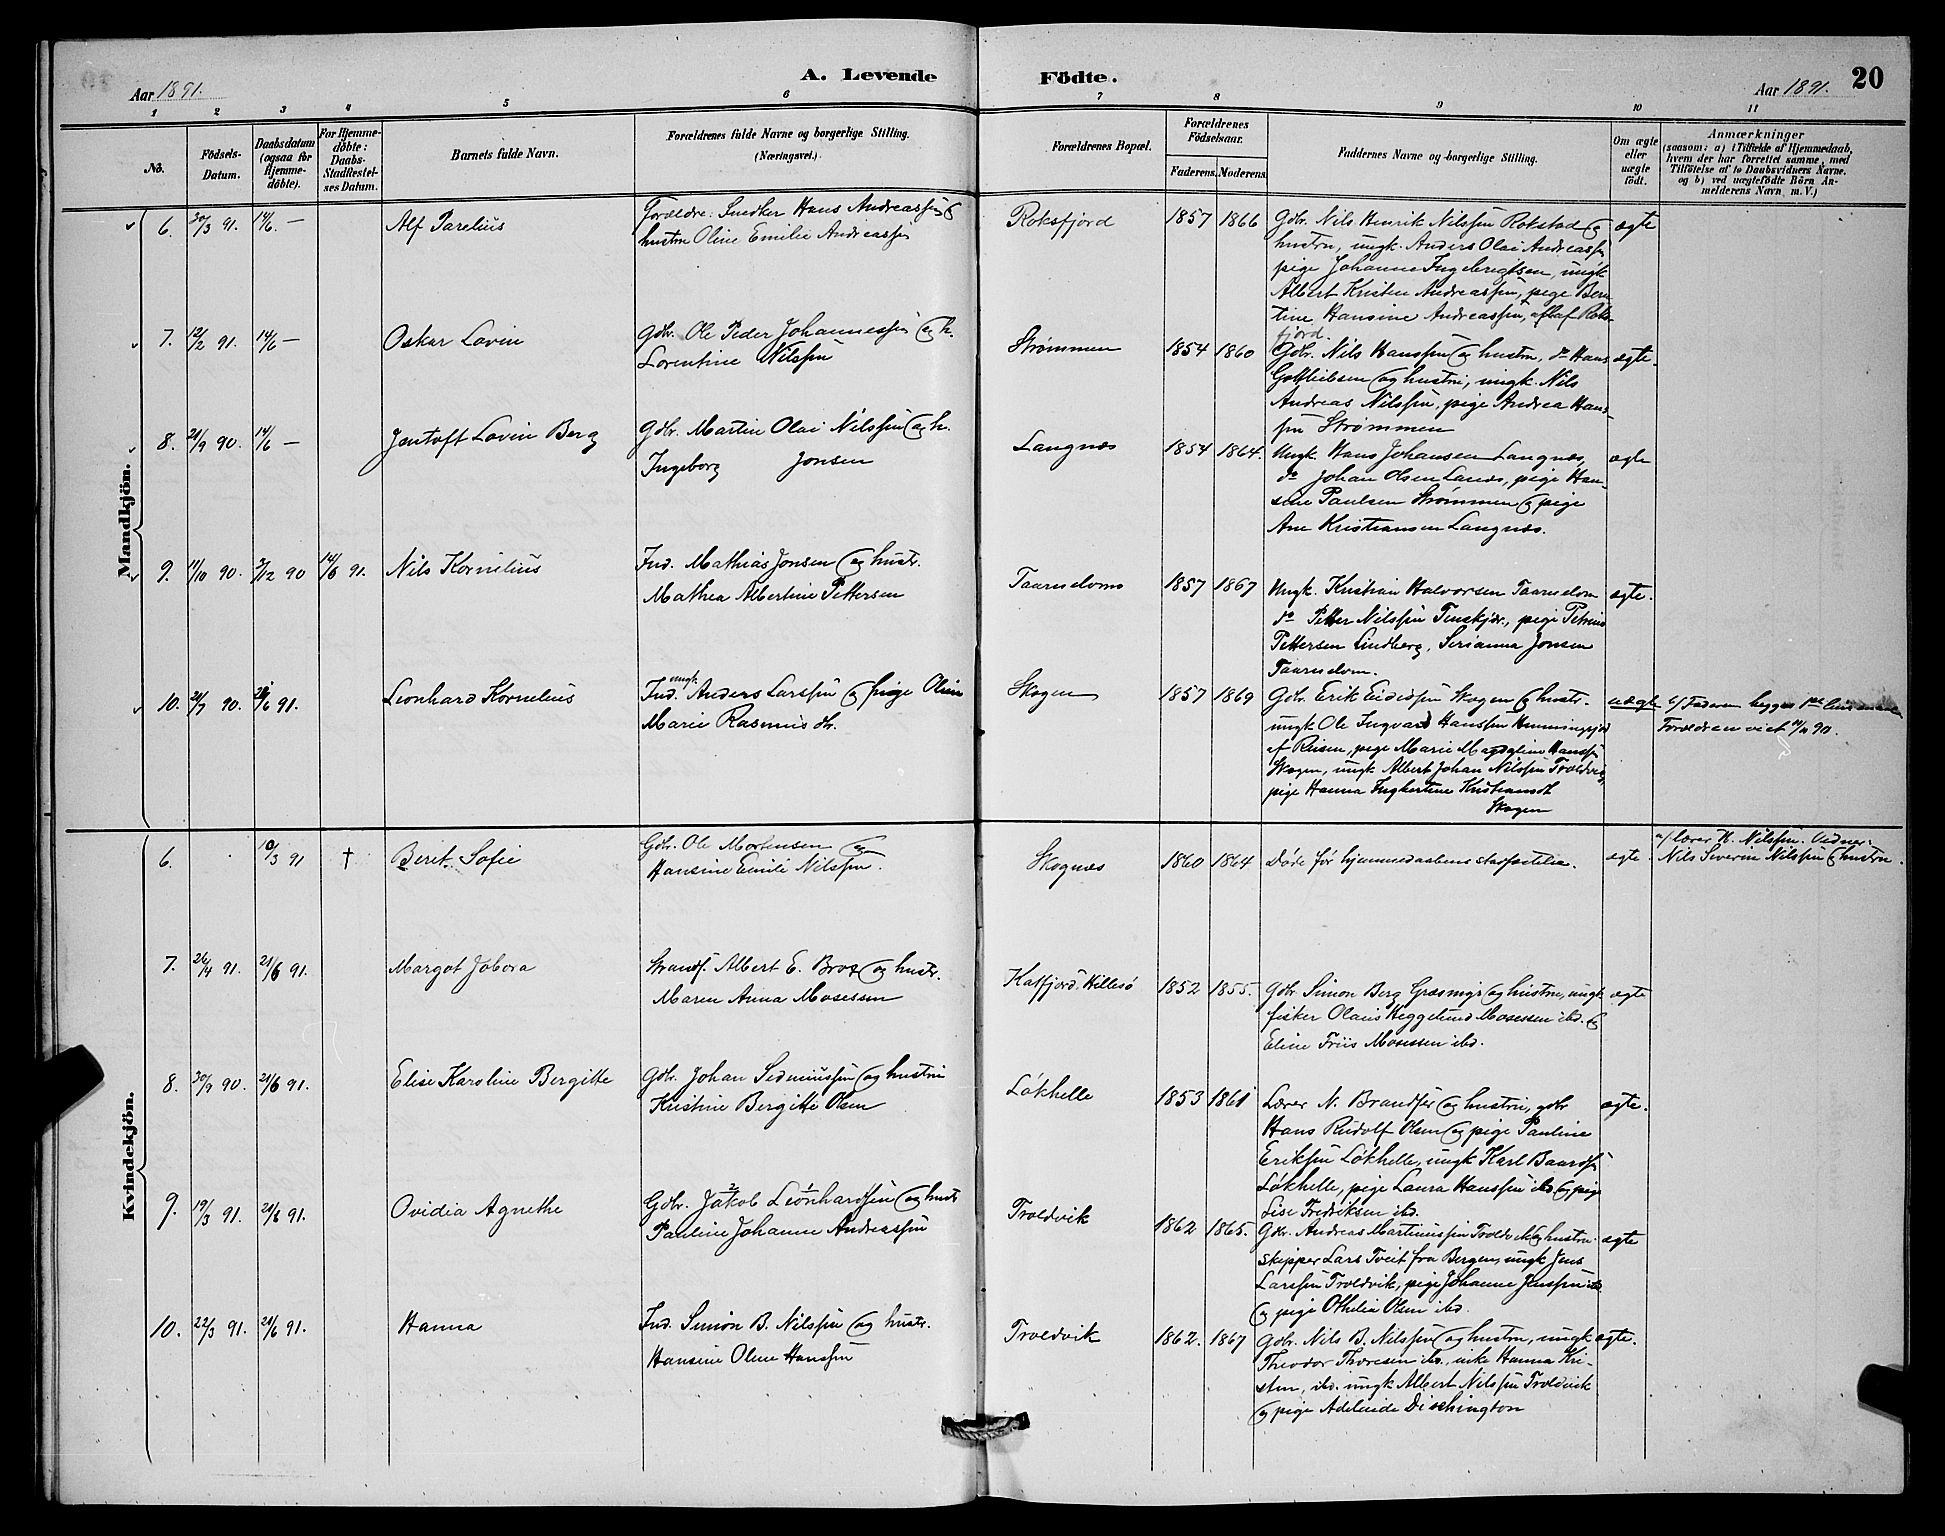 A. Levende Födte.
20
Aar 1891.
Aar 1891.
1 2 3 4 5 6 7 8 9 10 11
No.
Födsels-Datum.
Daabsdatum (ogsaa for Hjemmedöbte).
For Hjemmedöbte: Daabs-Stadfestelses Datum.
Barnets fulde Navn.
Forældrenes fulde Navne og borgerlige Stilling.
(Næringsvei.)
Forældrenes Bopæl.
Forældrenes Födselsaar.
Faderens. Moderens.
Faddernes Navne og borgerlige Stilling.
Om ægte eller uægte födt.
Anmærkninger
(saasom: a) i Tilfælde af Hjemmedaab,
hvem der har forrettet samme, med
Tilföielse af to Daabsvidners Navne.
og b) ved uægtefödte Börn An-
melderens Navn m. V.)
Mandkjön.
6. 30/3 91. 14/6 — Alf Parelius
Forældre: Snedker Hans Andreassen &
hustru Oline Emilie Andreassen
Roksfjord 1857 1866
Gbr. Nils Henrik Nilssen Rokstad &
hustru, ungk. Anders Olai Andreassen
pige Johanne Ingebrigtsen, ungk
Albert Kristen Andreassen, pige Bern
tine Hansine Andreassen, allaf Roks-
fjord.
ægte
7. 12/2 91. 14/6 — Oskar Lovin
Gbr. Ole Peder Johannessen & h.
Lorentine Nilssen
Strømmen 1854 1860
Gbr. Nils Hanssen & hustru, do Hans
Gottliebsen & hustru, ungk. Nils
Andreas Nilssen, pige Andrea Hans-
sen Strømmen
ægte.
8. 21/9 90. 14/6 — Jentoft Lovin Berg
Gbr. Martin Olai Nilssen & h.
Ingeborg Jonsen
Langnæs 1854 1864.
Ungk. Hans Johansen Langnæs,
do Johan Olsen Lanes, pige Han-
sine Paulsen Strømmen & pige
Ane Kristiansen Langnæs.
ægte
9. 11/10 90. 2/12 90 14/6 91. Nils Kornelius
Ind. Mathias Jonsen & hustr.
Mathea Albertine Pettersen
Taarnelvm 1857 1867
Ungk. Kristian Halvorsen Taarnelvm
do Petter Nilssen Finskjær, pige Petrine
Pettersen Lindberg, Serianna Jonsen
Taarnelvm.
ægte.
10. 90. 91. Leonhard Kornelius
Ind. ungk Anders Larssen & pige Oline
Marie Rasmusdtr.
Skogen 1857 1869
Gbr. Erik Eidesen Skogen & hustr.
ungk Ole Ingvard Hanssen Hemmingsjord
af Reisen, pige Marie Magdaline Hanssen
Skogen, ungk Albert Johan Nilssen Troldvig,
pige Hanna Ingbertine Kristiansdt
Skogen
uægte
b/ Faderen begges 1ste
Forældren viet 90.
Kvindekjön.
6. 10/3 91 † Beret Sofie
Gbr. Ole Mortensen &
Hansine Emilie Nilssen.
Skognæs 1860 1864
Døde før hjemmedaabens stadfæstelse.
ægte
a/ lærer H. Nilssen. Vidner:
Nils Severin Nilssen & hustru.
7. 26/4 91. 21/6 91. Margot Jobora
Strands. Albert E. Brox & hustr.
Maren Anna Mosessen
Katfjord. Hillesø 1852 1855.
Gbr. Simon Berg Græsmyr & hustru, ungk
fisker Olaus Heggelund Mosessen ibd. &
Eline Friis Mosessen ibd.
ægte
8. 30/9 90. 21/6 91. Elise Karoline Bergitte
Gbr. Johan Sedeniussen & hustru
Kristine Bergitte Olsen
Løkhelle 1853 1861
Lærer N. Brandser & hustru, gbr
Hans Rudolf Olsen & pige Pauline
Erikssen Løkhelle, ungk Karl Baardsen
Løkhelle, pige Laura Hanssen ibd & pige
Lise Fredriksen ibd.
ægte.
9. 19/3 91. 21/6 91. Ovidia Agnethe
Gbr. Jakob Leonhardsen & hustr
Pauline Johanne Andreassen
Troldvik 1862 1865.
Gbr. Andreas Martinussen Troldvik & hustru
skipper Lars Tveit fra Bergen, ungk Jens
Larssen Troldvik, pige Johanne Jenssen ibd
& pige Othelia Olsen ibd.
ægte
10. 22/3 91. 21/6 91. Hanna
Ind. Simon B. Nilssen & hustr.
Hansine Oline Hanssen
Troldvik 1862. 1867
Gbr. Nils B. Nilssen & hustru, ungk
Theodor Thoresen ibd., enke Hanna Kri-
sten, ibd. ungk Albert Nilssen Troldvik
& pige Adelaide Dischington
ægte.